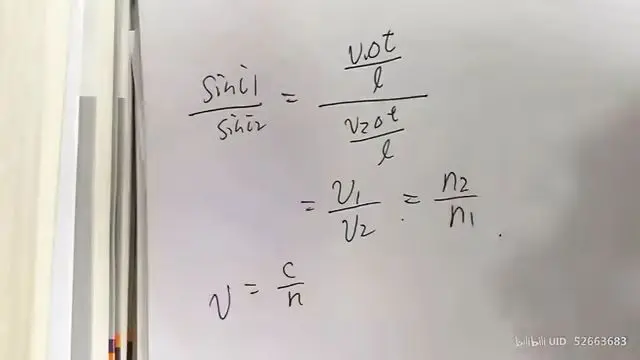 sin i1 / sin i2 = (v1Δt / l) / (v2Δt / l)
= v1 / v2 = n2 / n1 .
v = c / n
bilibili UID 52663683